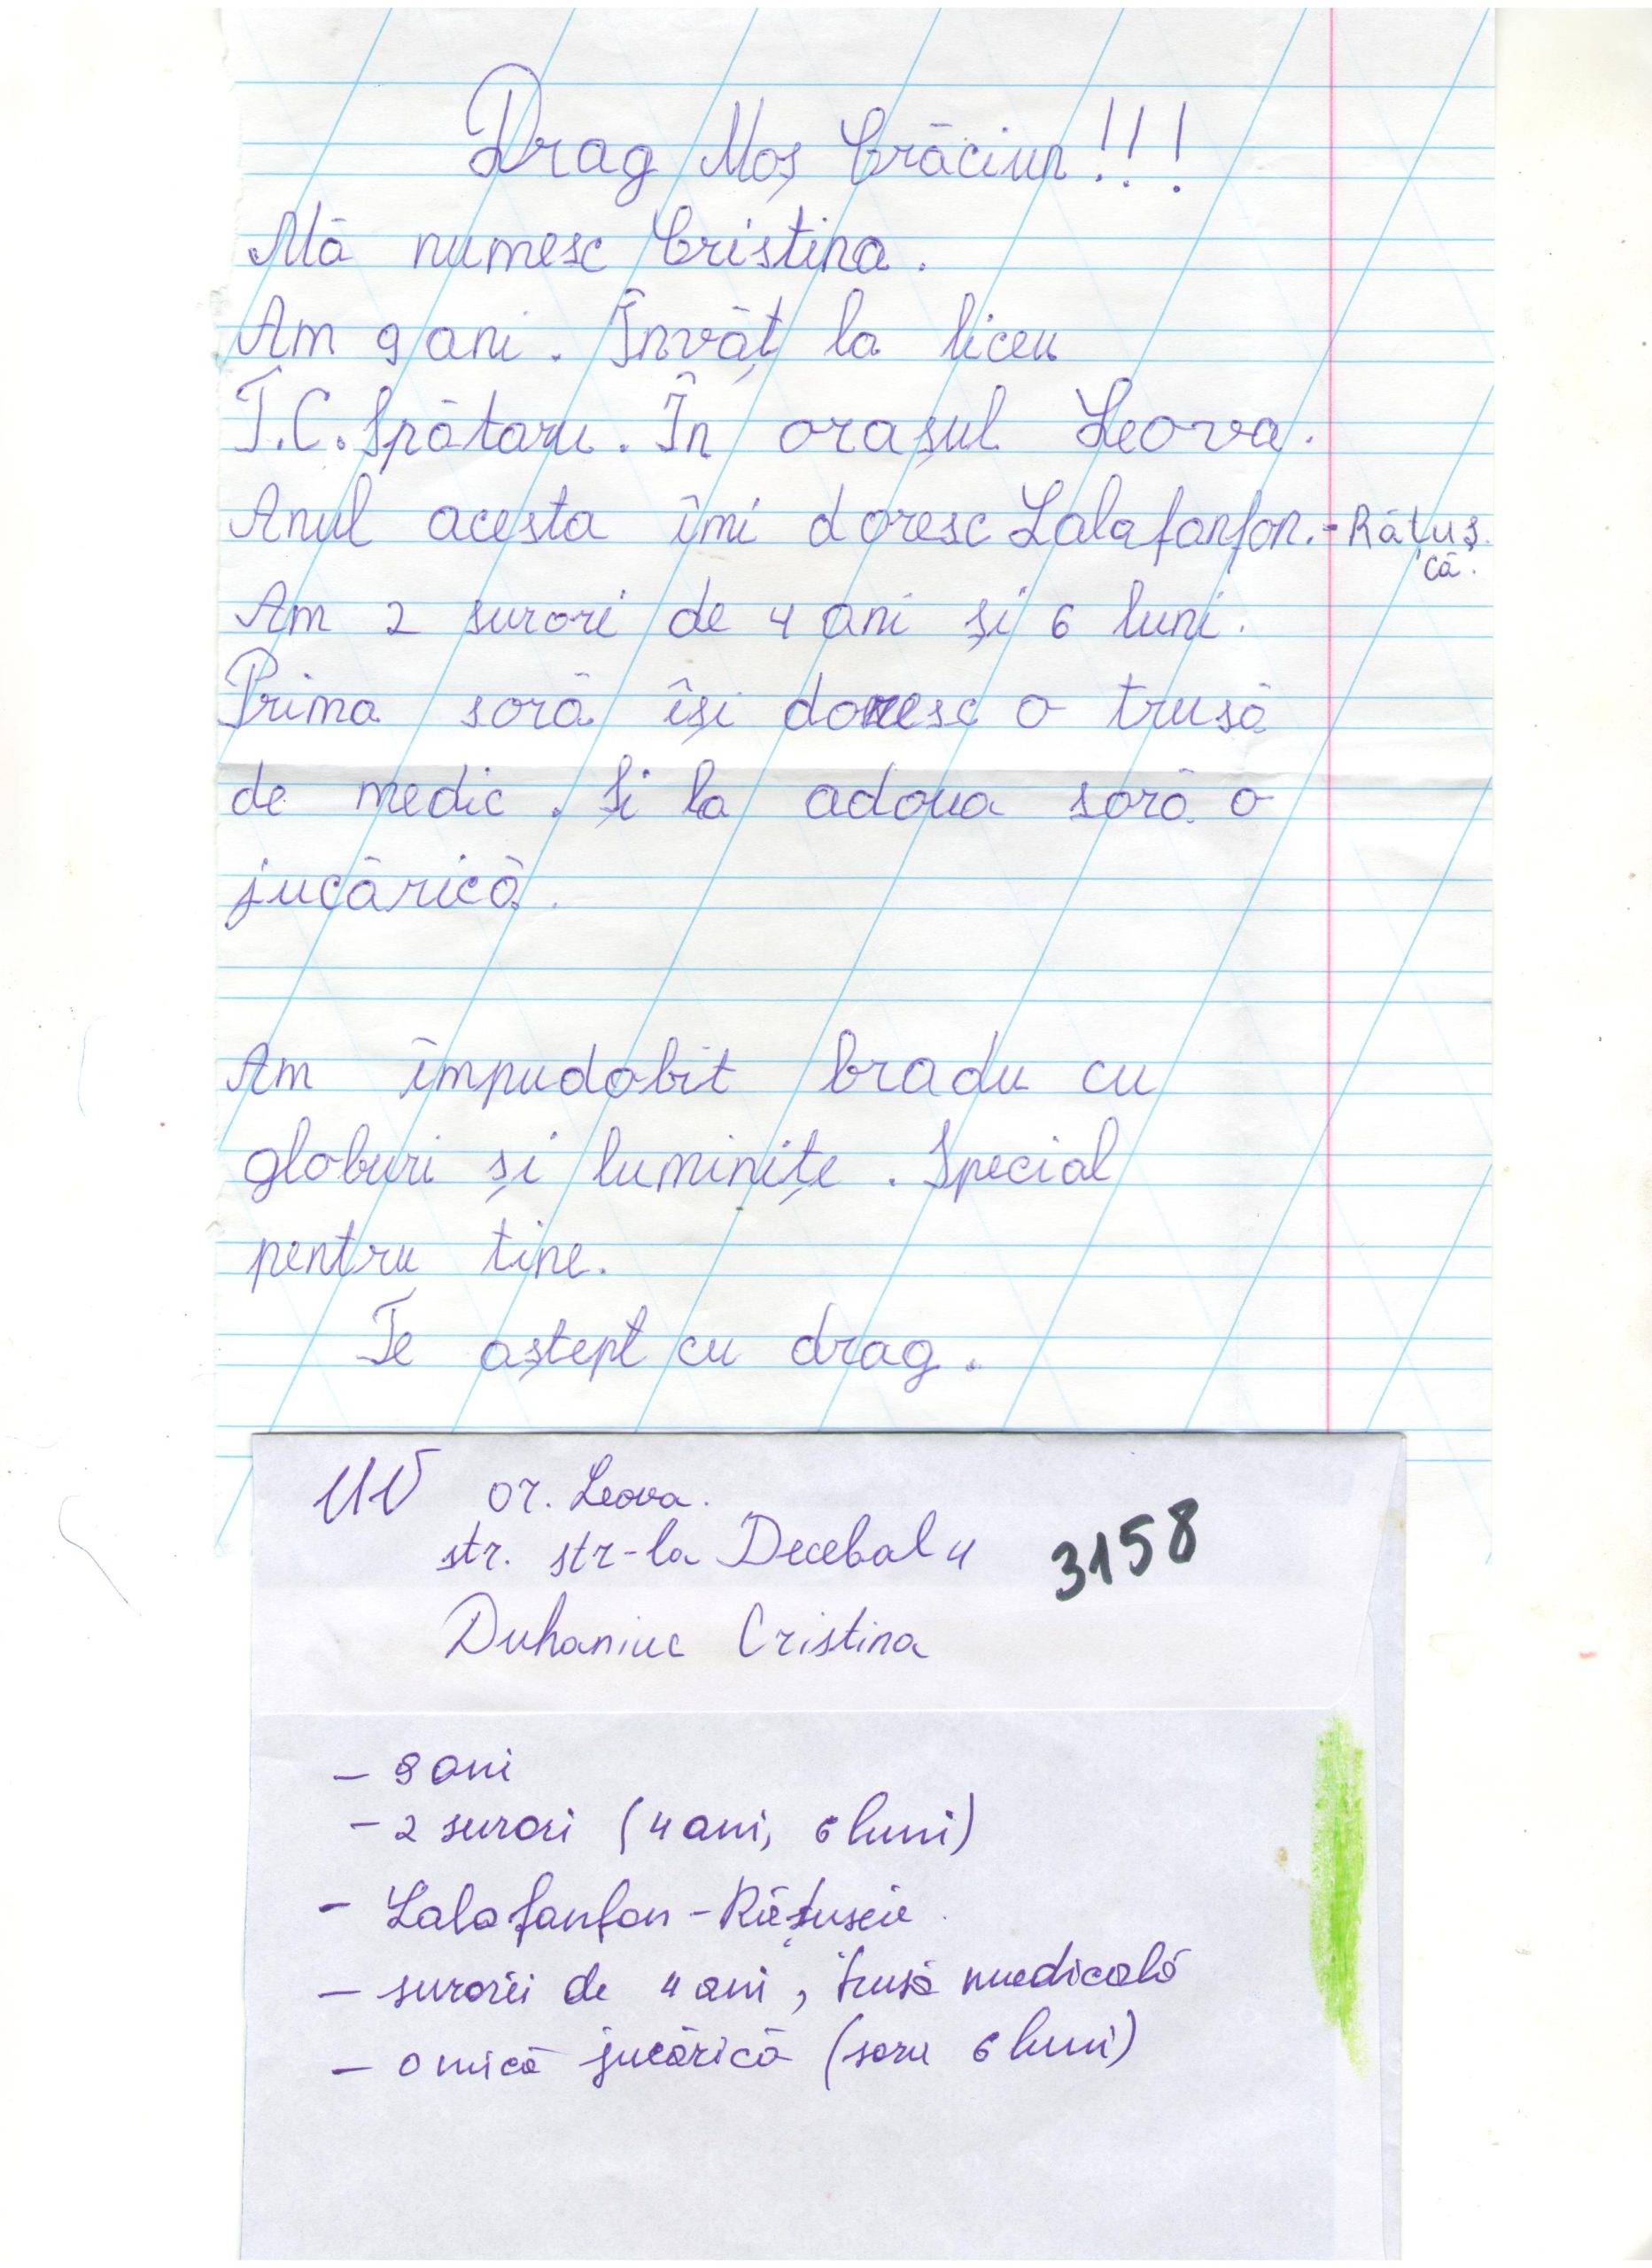 Drag Moș Crăciun!!!
Mă numesc Cristina.
Am 9 ani. Învăț la liceu
T.C. Spătaru. În orașul Leova.
Anul acesta îmi doresc Lalafanfon. - Rățuș
că.
Am 2 surori de 4 ani și 6 luni.
Prima soră își doresc o trusă
de medic. Și la adoua soră o
jucărică.
Am împudobit bradu cu
globuri și luminițe. Special
pentru tine.
Te aștept cu drag.
or. Leova.
str. str-la Decebal 4
3158
Duhaniuc Cristina
- 9 ani
- 2 surori (4 ani, 6 luni)
- Lalafanfon - Rățușcă
- surorii de 4 ani, trusă medicală
- o mică jucărică (sora 6 luni)